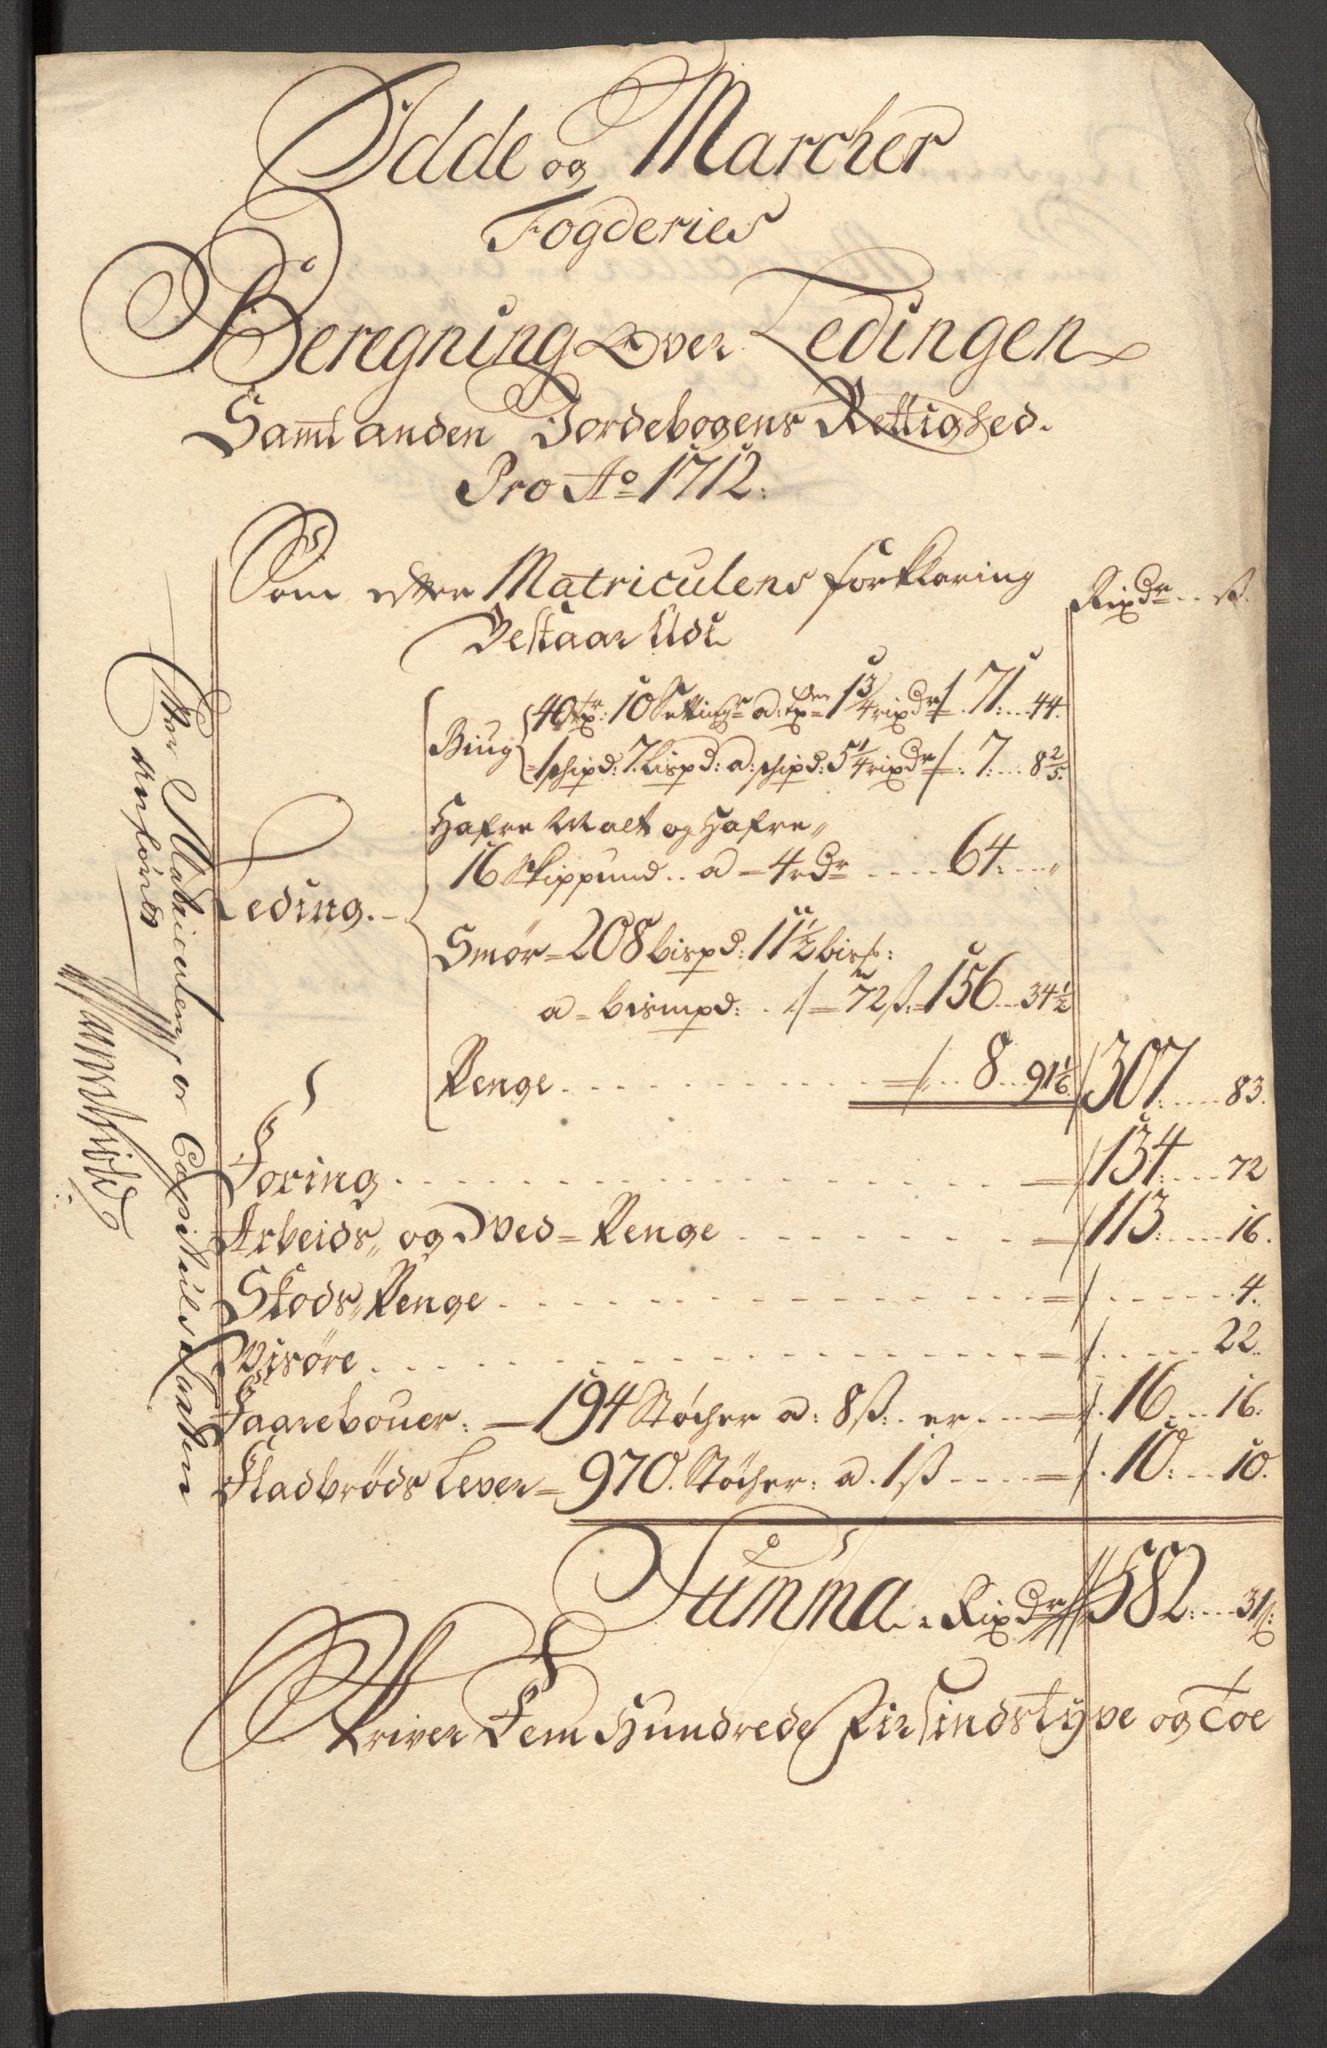 Idde og Marcher
Fogderies
Beregning Over Ledingen
Samt anden Jordebogens Rettighed.
Pro Ao 1712:
Som efter Matriculens forklaring
Bestaar Udi
Rixdr .. ß.
Biug 40 tr: 10 Setting a: 1 3/4 rixdr /. 71: .. 44.
1 schipd: 7 Lispd: a: schipd: 5 1/4 rixdr /: 7: ... 8 2/5.
Hafre Malt og Hafre
16 Skippund .. a - 4 rdr .... 64: .. "
Leding. -
Smør = 208 bispd: 11 1/2 bis:
a = bismpd: . / = 72 ß: = 156 .. 34 1/2
Penge . . . . . = /... 8 .. 91 1/6 / 307: .... 83.
Foring . . . . . = / 134: .... 72
Arbeids, og Ved = Penge . . . . = / 113: .... 16.
Skods, Penge . . . . . = / ..... 4.
Visøre . . . . . = / ..... 22.
Faarebouer: = 194 Støcher a: 8 ß: er .... = /. 16 .... 16.
Fladbrøds Lever = 970. Støcher: a. 1 ß .... = /. 10: ... 10.
Summa .. Rixdr // 582: .... 31 ß:
Skriver Fem Hundrede Firsindstyve og Toe
Efter Matriculen er Capitulstaxten
Anførdt